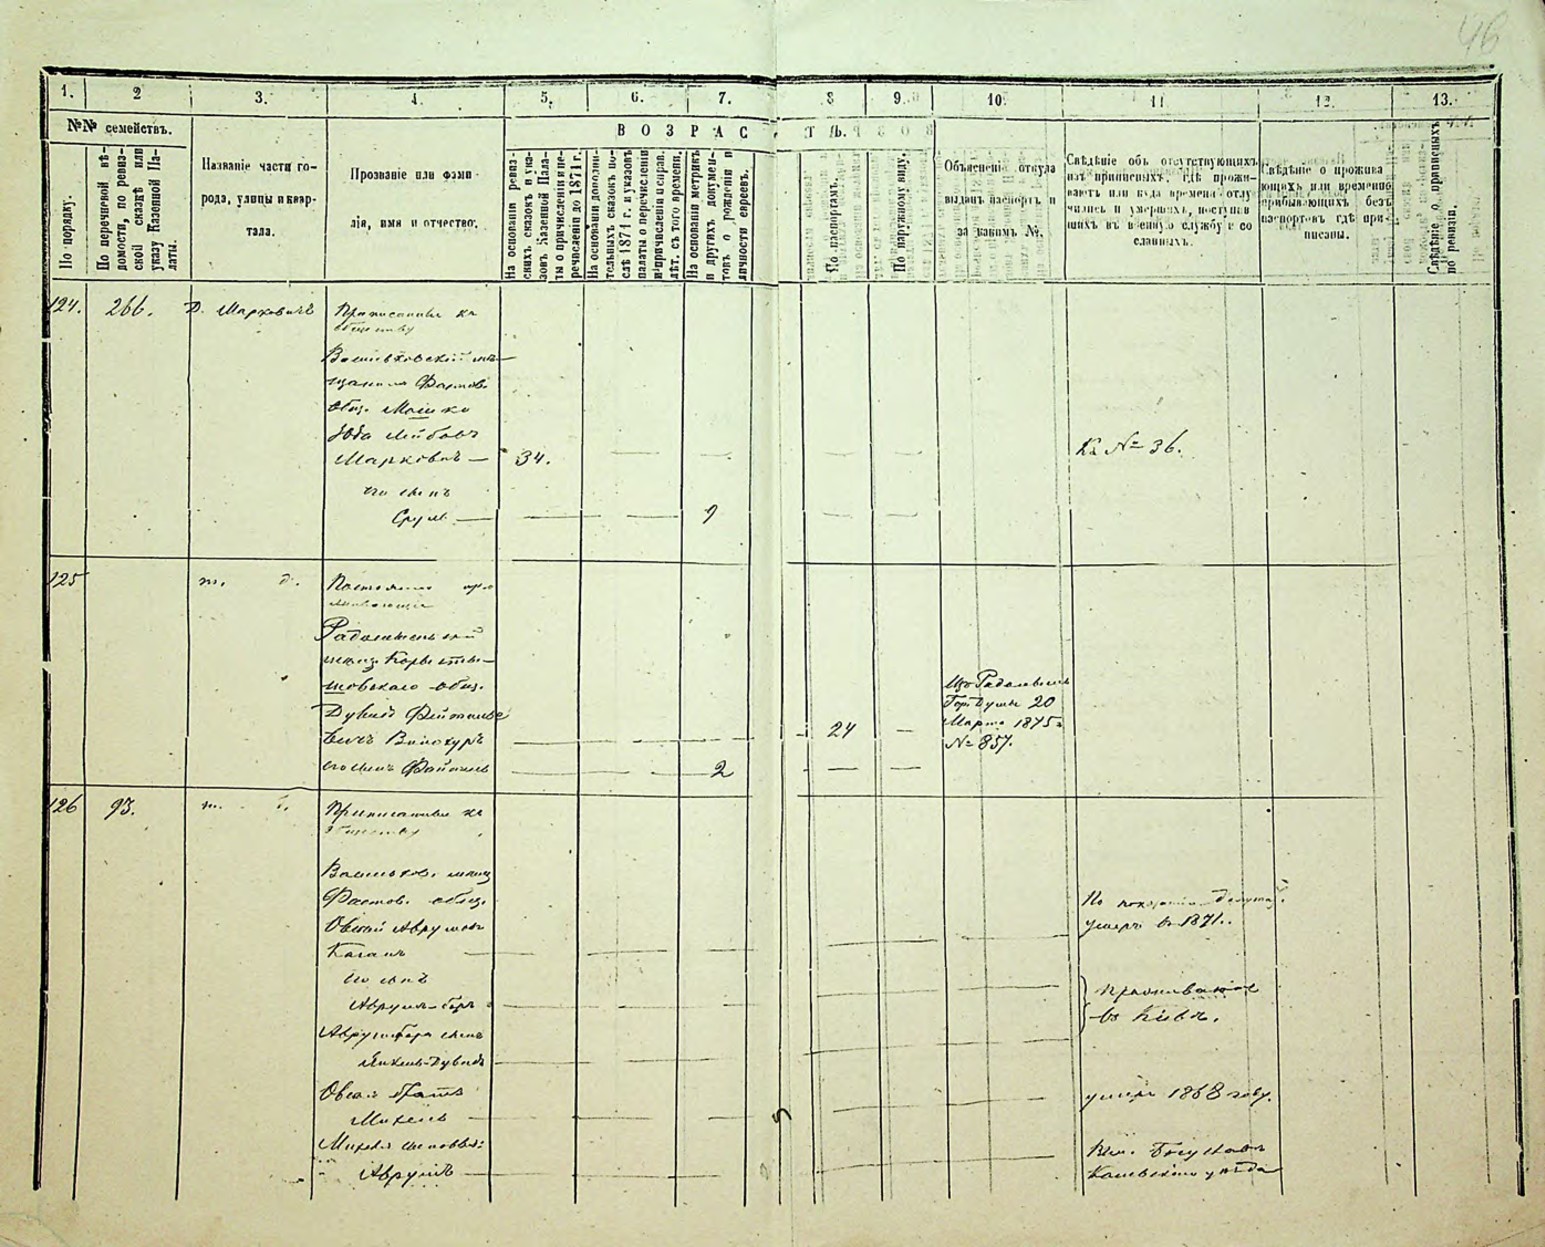 46
1. 2 3. 4. 5. 6. 7. 8 9. 10. 11 12. 13.
№№ семействъ.
По порядку.
По перечневой вѣ-
домости, по ревиз-
ской сказкѣ или
указу Казенной Па-
латы.
Названіе части го-
рода, улицы и квар-
тала.
Прозваніе или фами-
лія, имя и отчество.
ВОЗРАСТЪ.
На основаніи ревиз-
скихъ сказокъ и ука-
зовъ Казенной Пала-
ты о причисленіи и пе-
речисленіи до 1871 г.
На основаніи дополни-
тельныхъ сказокъ по-
слѣ 1871 г. и указовъ
палаты о перечисленіи
и причисленіи справ.
лѣт. съ того времени.
На основаніи метрикъ
и другихъ докумен-
товъ о рожденіи и
личности евреевъ.
По паспортамъ.
По наружному виду.
Объясненіе откуда
выданъ паспортъ и
за какимъ №.
Свѣдѣніе объ отсутствующихъ
изъ приписныхъ, гдѣ прожи-
ваютъ или куда времена отлу
чились и умершихъ, поступив
шихъ въ военную службу и со
сланныхъ.
Свѣдѣніе о прожива
ющихъ или временно
прибывающихъ безъ
паспортовъ гдѣ при-
писаны.
Свѣдѣніе о приписныхъ
по ревизіи.
124. 266. Д. Марховичъ
Приписанные къ
обществу
Васильковскій мѣ-
щанинъ Фастов.
общ. Мошко
Юда Лейбовъ
Марховичъ — 34.
Къ № 36.
его сынъ
Срулъ — 9
125 т. д.
Постоянно про
живающіе
Радомысльскій
мѣщ. Коросты-
шовскаго общ.
Дувидъ Фейтелье
вичъ Винокуръ 24
его сынъ Файтель 2
Изъ Радомысль
Гор. Думы 20
Марта 1875 г.
№ 857.
126 93. т. д.
Приписанные къ
обществу
Васильков. мѣщ
Фастов. общ.
Овсей Аврумов
Каганъ
По показанію депутат.
умеръ въ 1871.
его сынъ
Аврумъ-Беръ
Проживаютъ
въ Кіевѣ.
Аврумъ-Бера сынъ
Янкель-Дувидъ
Овсея братъ
Михель
умеръ 1868 году.
Михеля сыновья:
Аврумъ
Богуславъ
Каневскаго уѣзда